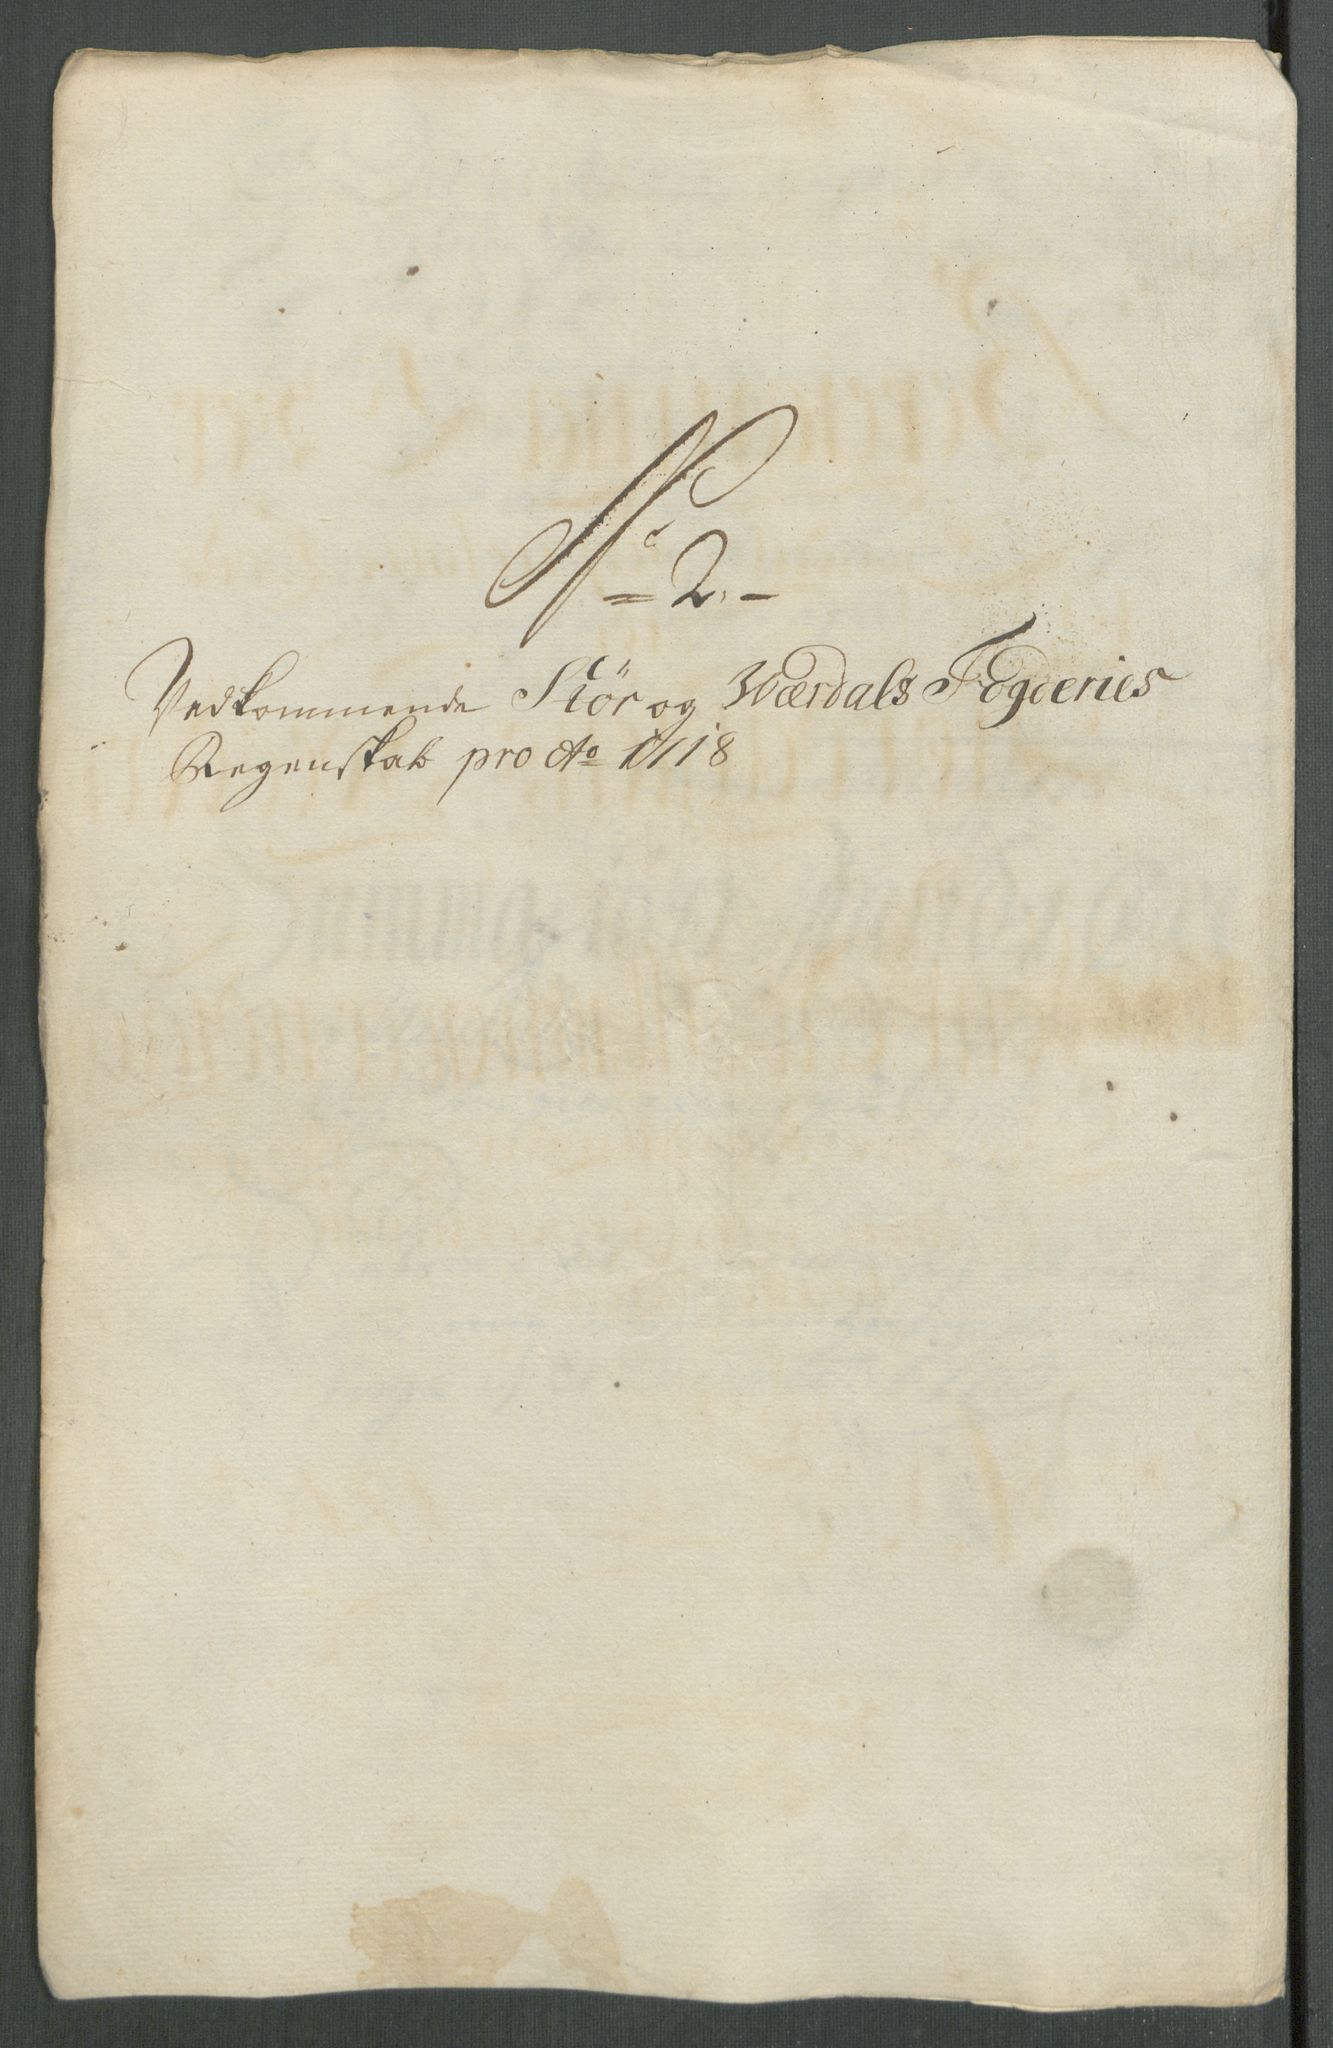 No 2.
Vedkommende Stør og Werdals Fogderies
Regenskab pro Ao 1718